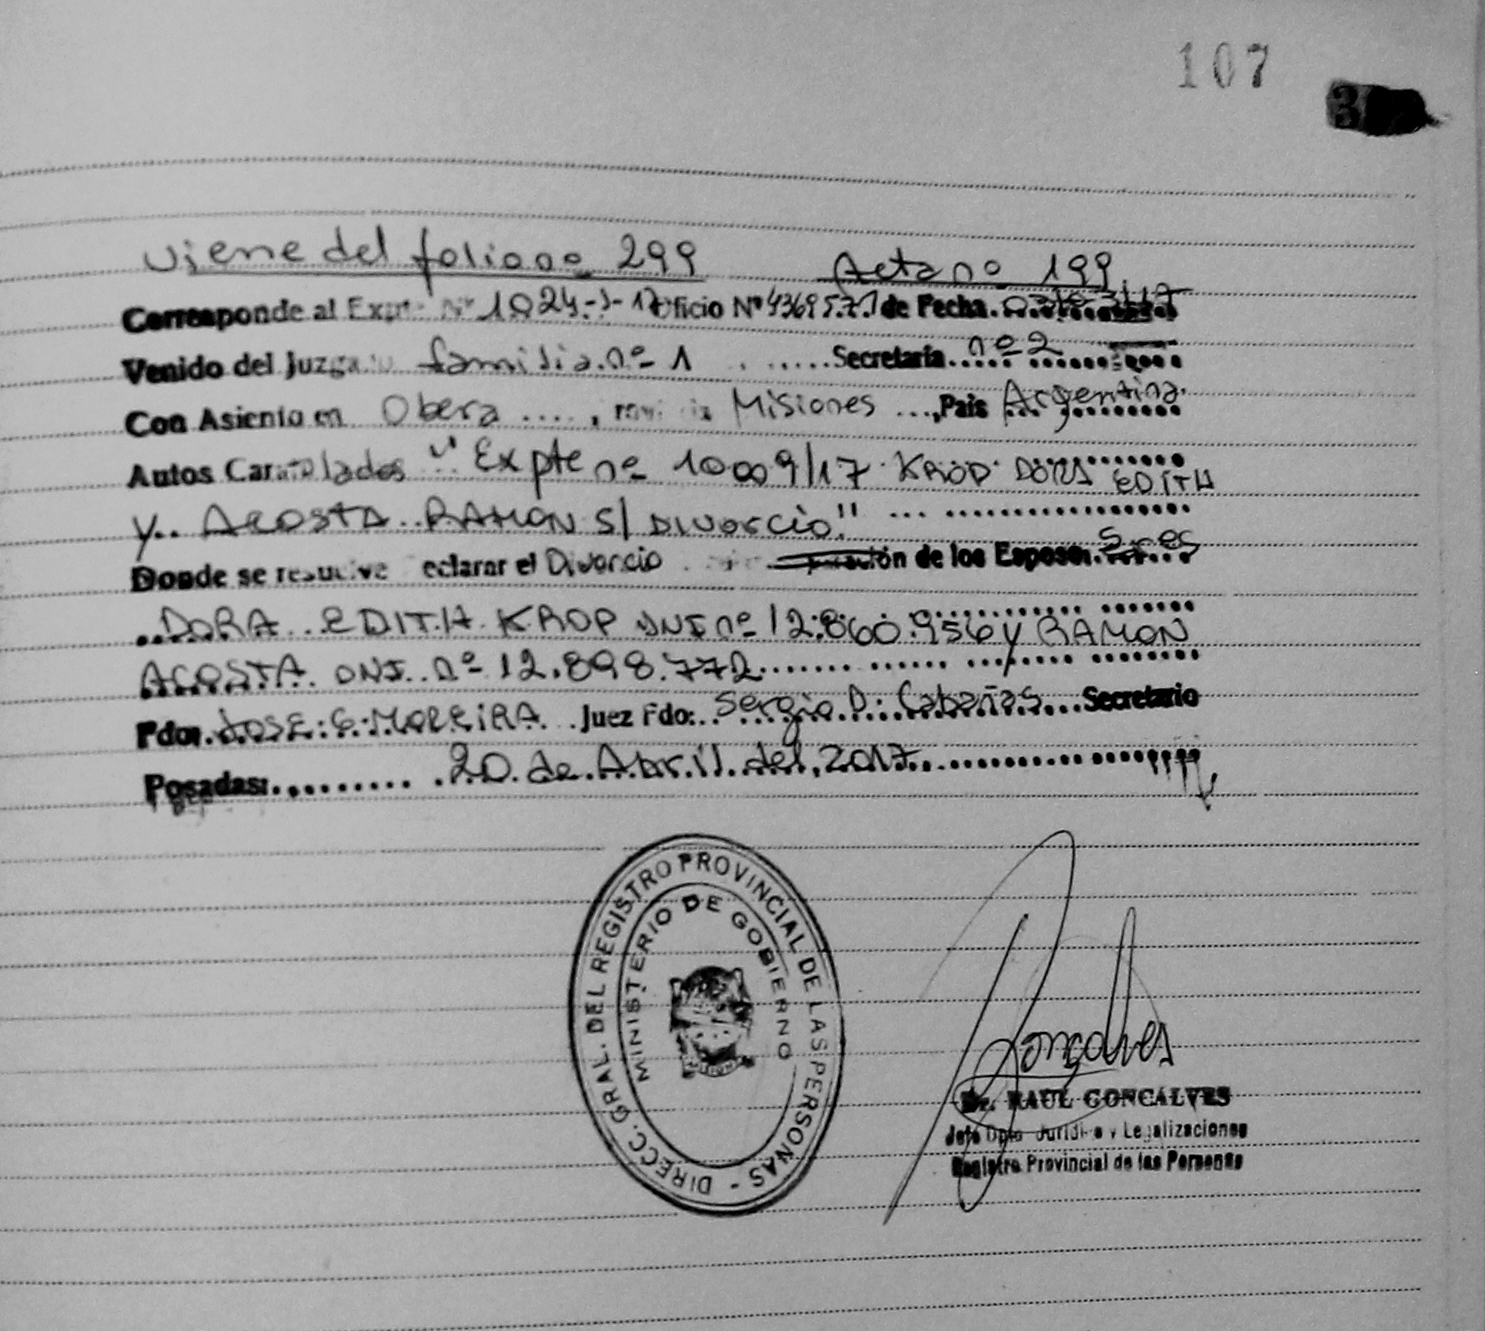 107
3
viene del folio nº 299 Acta nº 199
Corresponde al Expte Nº 1024-J-17 Oficio Nº 4369571 de Fecha
Venido del Juzgado familia nº 1 ...... Secretaría ..... nº 2 ......
Con Asiento en Obera ...., Provincia Misiones ..., País Argentina
Autos Caratulados "Expte nº 10009/17 KROP DORA EDITH
y.. ACOSTA RAMON S/ DIVORCIO"
Donde se resuelve eclarar el Divorcio de los Esposos Sres
DORA EDITH KROP DNI nº 12.860.956 y RAMON
ACOSTA DNI nº 12.898.772
Fdo: JOSE G. MOREIRA Juez Fdo: Sergio D. Cabañas Secretario
Posadas: 20 de Abril del 2017
DIRECC. GRAL. DEL REGISTRO PROVINCIAL DE LAS PERSONAS -
MINISTERIO DE GOBIERNO
Gonçalves
Dr. RAUL GONCALVES
Jefe Dpto Jurídico y Legalizaciones
Registro Provincial de las Personas